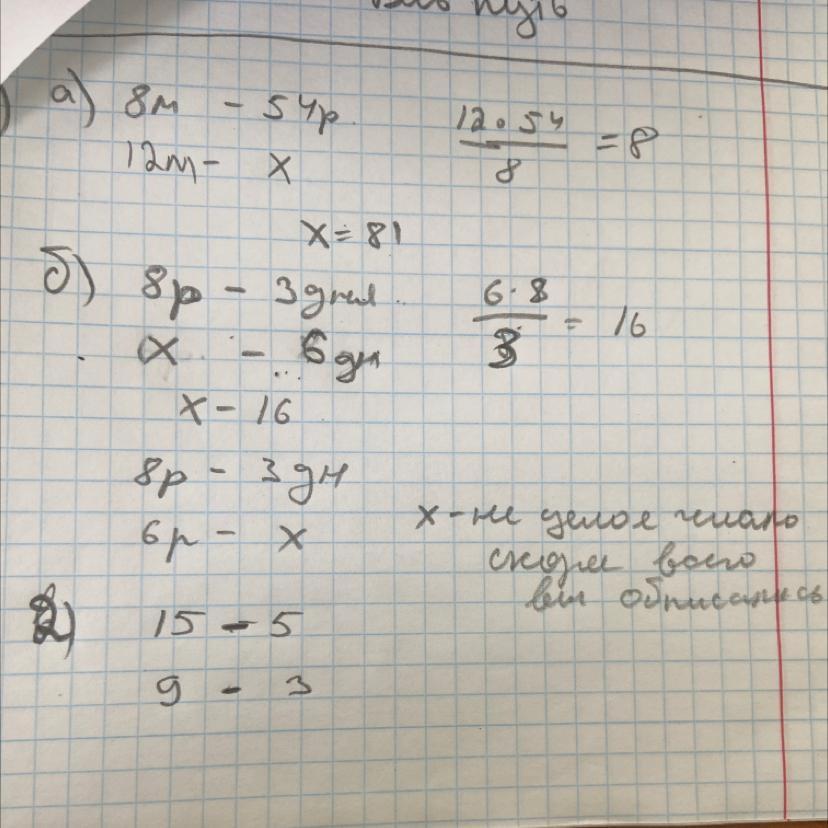 а) 8м - 54р.
12м - х
12·54 / 8 = 8
х = 81
б) 8р - 3 дня
х - 6 дн
6·8 / 3 = 16
х - 16
8р - 3 дн
6р - х
х - не целое число
скорей всего
вы обписались
2) 15 - 5
9 - 3